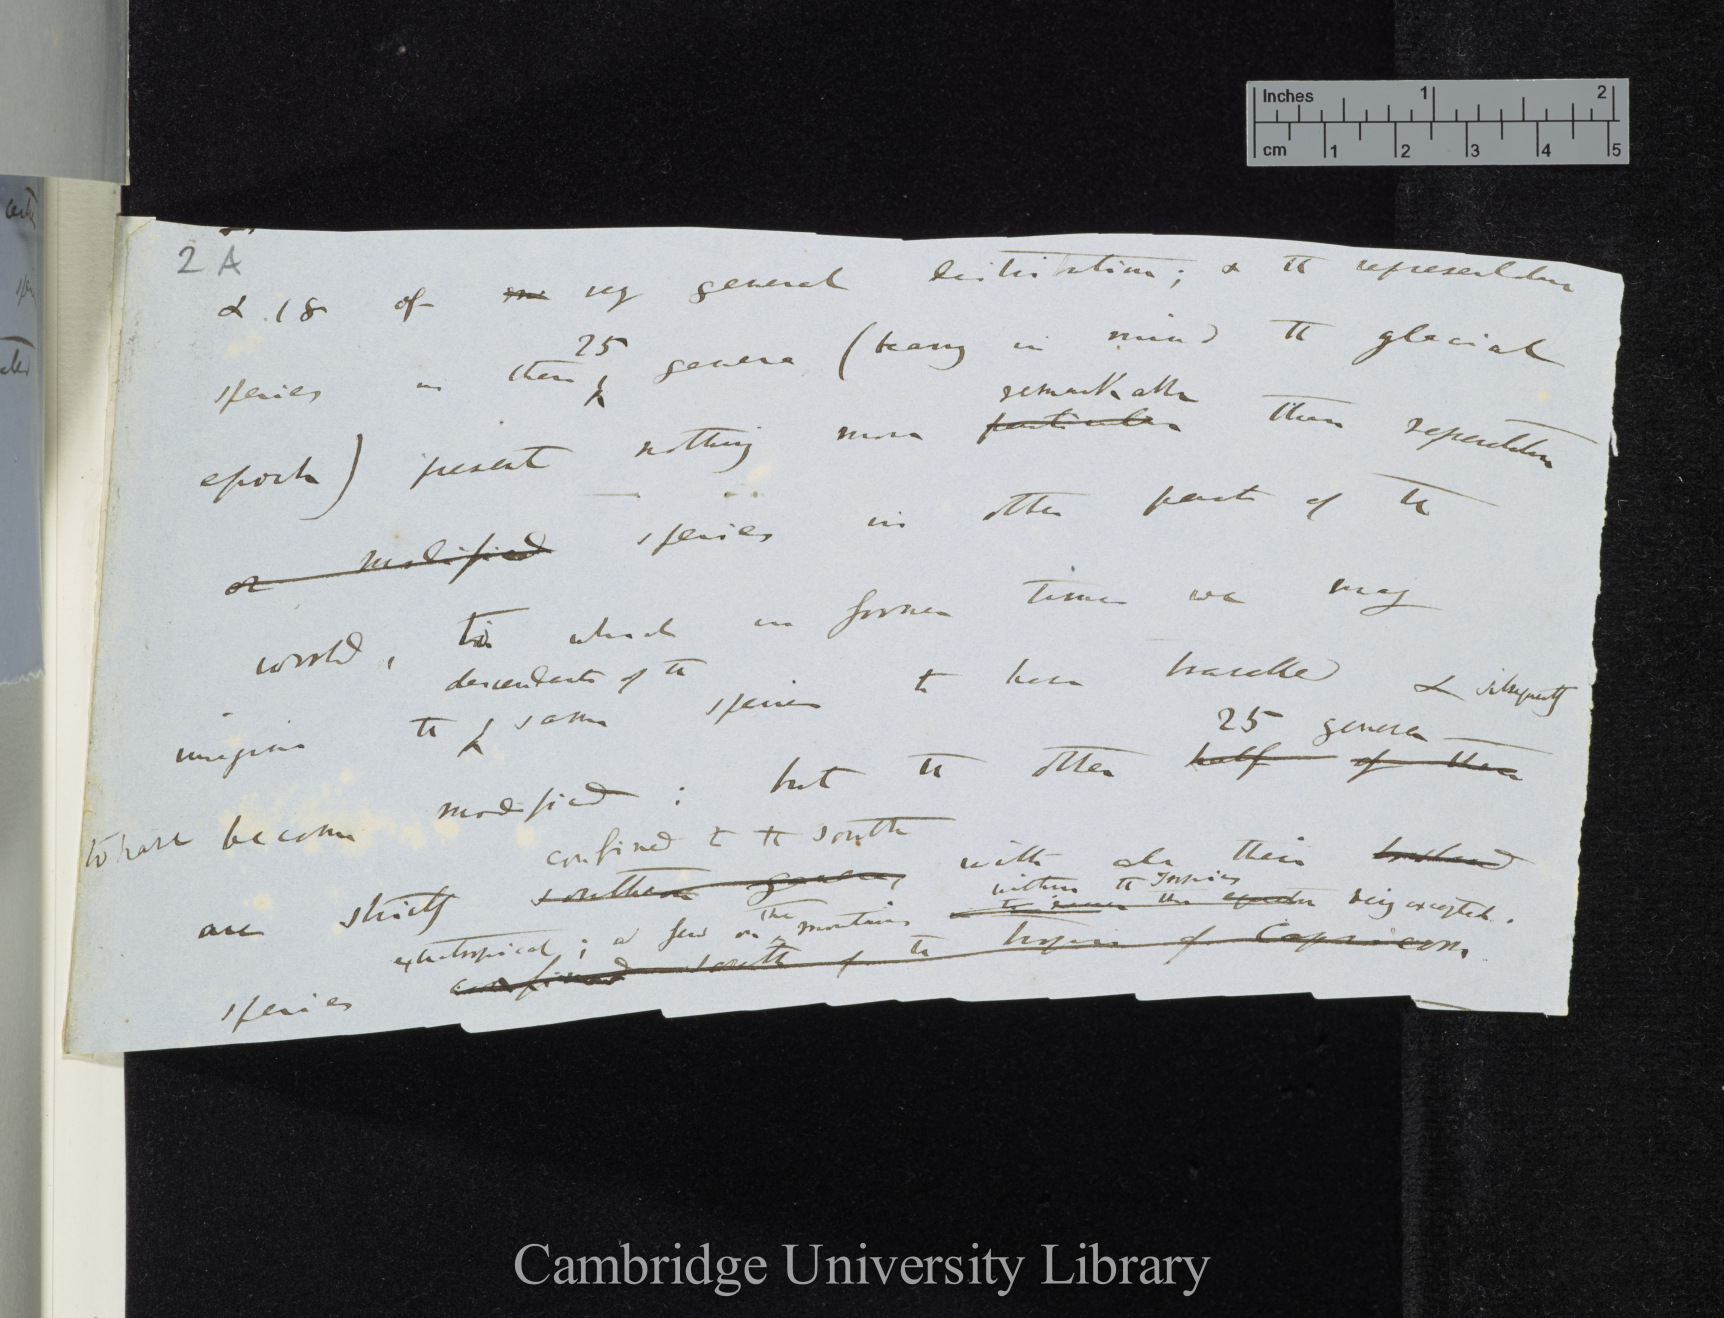 Inches 1 2
cm 1 2 3 4 5
2 A
& 18 of very general distribution; & the representative
25
species in these genera (bearing in mind the glacial
remarkable
epoch) present nothing more particular than representative
or modified species in other parts of the
world, to which in former times we may
descendants of the
imagine the same species to have travelled & subsequently
25 genera
to have become modified: but the other half of them
confined to the south
are strictly southern genera, with all their
within the Tropics
extratropical; a few on the mountains the equator being excepted.
species confined south of the tropic of Capricorn.
Cambridge University Library